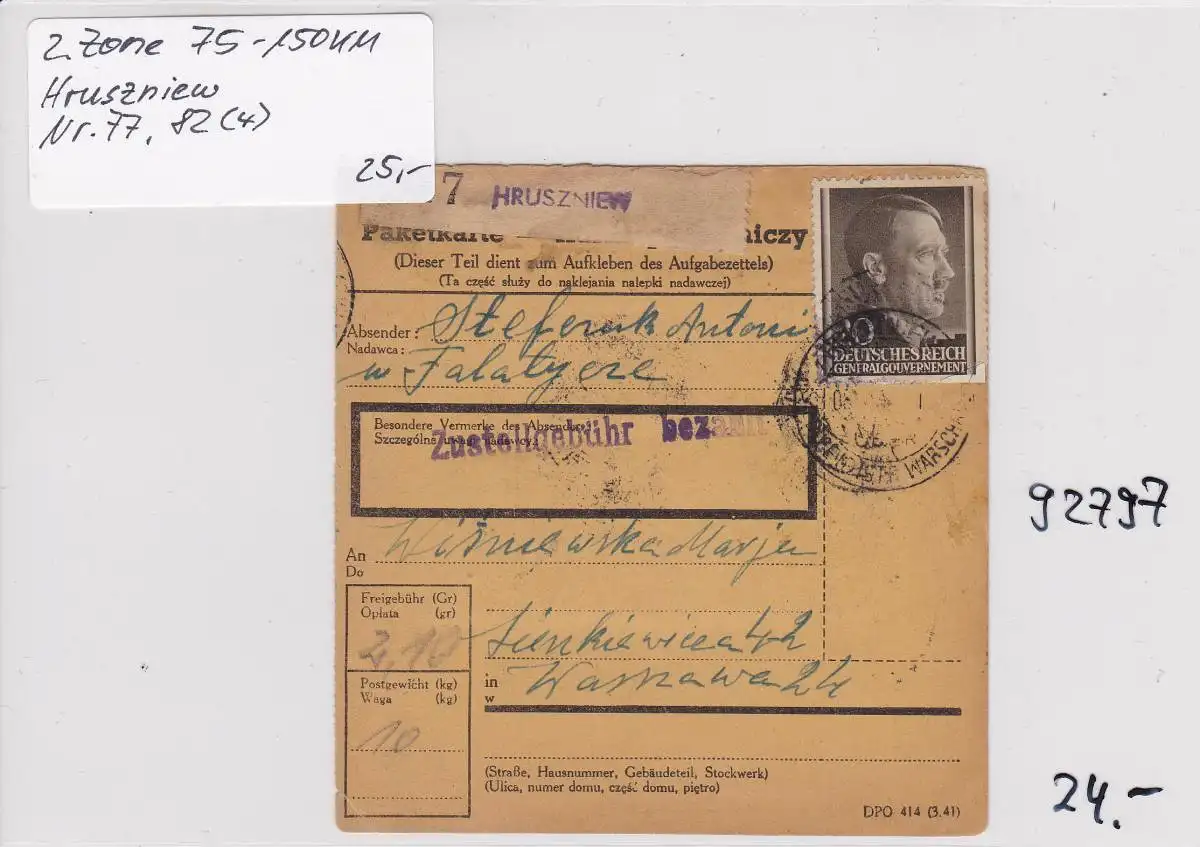 2. Zone 75-150KM
Hruszniew
Nr. 77, 82(4)
25,-
7 HRUSZNIEW
Paketkarte
(Dieser Teil dient zum Aufkleben des Aufgabezettels)
(Ta część służy do naklejania nalepki nadawczej)
Absender: Antoni
Nadawca:
w
DEUTSCHES REICH
GENERALGOUVERNEMENT
Besondere Vermerke des Absenders:
Szczególne uwagi nadawcy:
Zustellgebühr bezahlt
WARSCH
An Wiśniewska Marja
Do
Freigebühr (Gr)
Opłata (gr)
Sienkiewicza 42
Postgewicht (kg)
Waga (kg)
in Warszawa
w
10
(Straße, Hausnummer, Gebäudeteil, Stockwerk)
(Ulica, numer domu, część domu, piętro)
DPO 414 (3.41)
92797
24.-